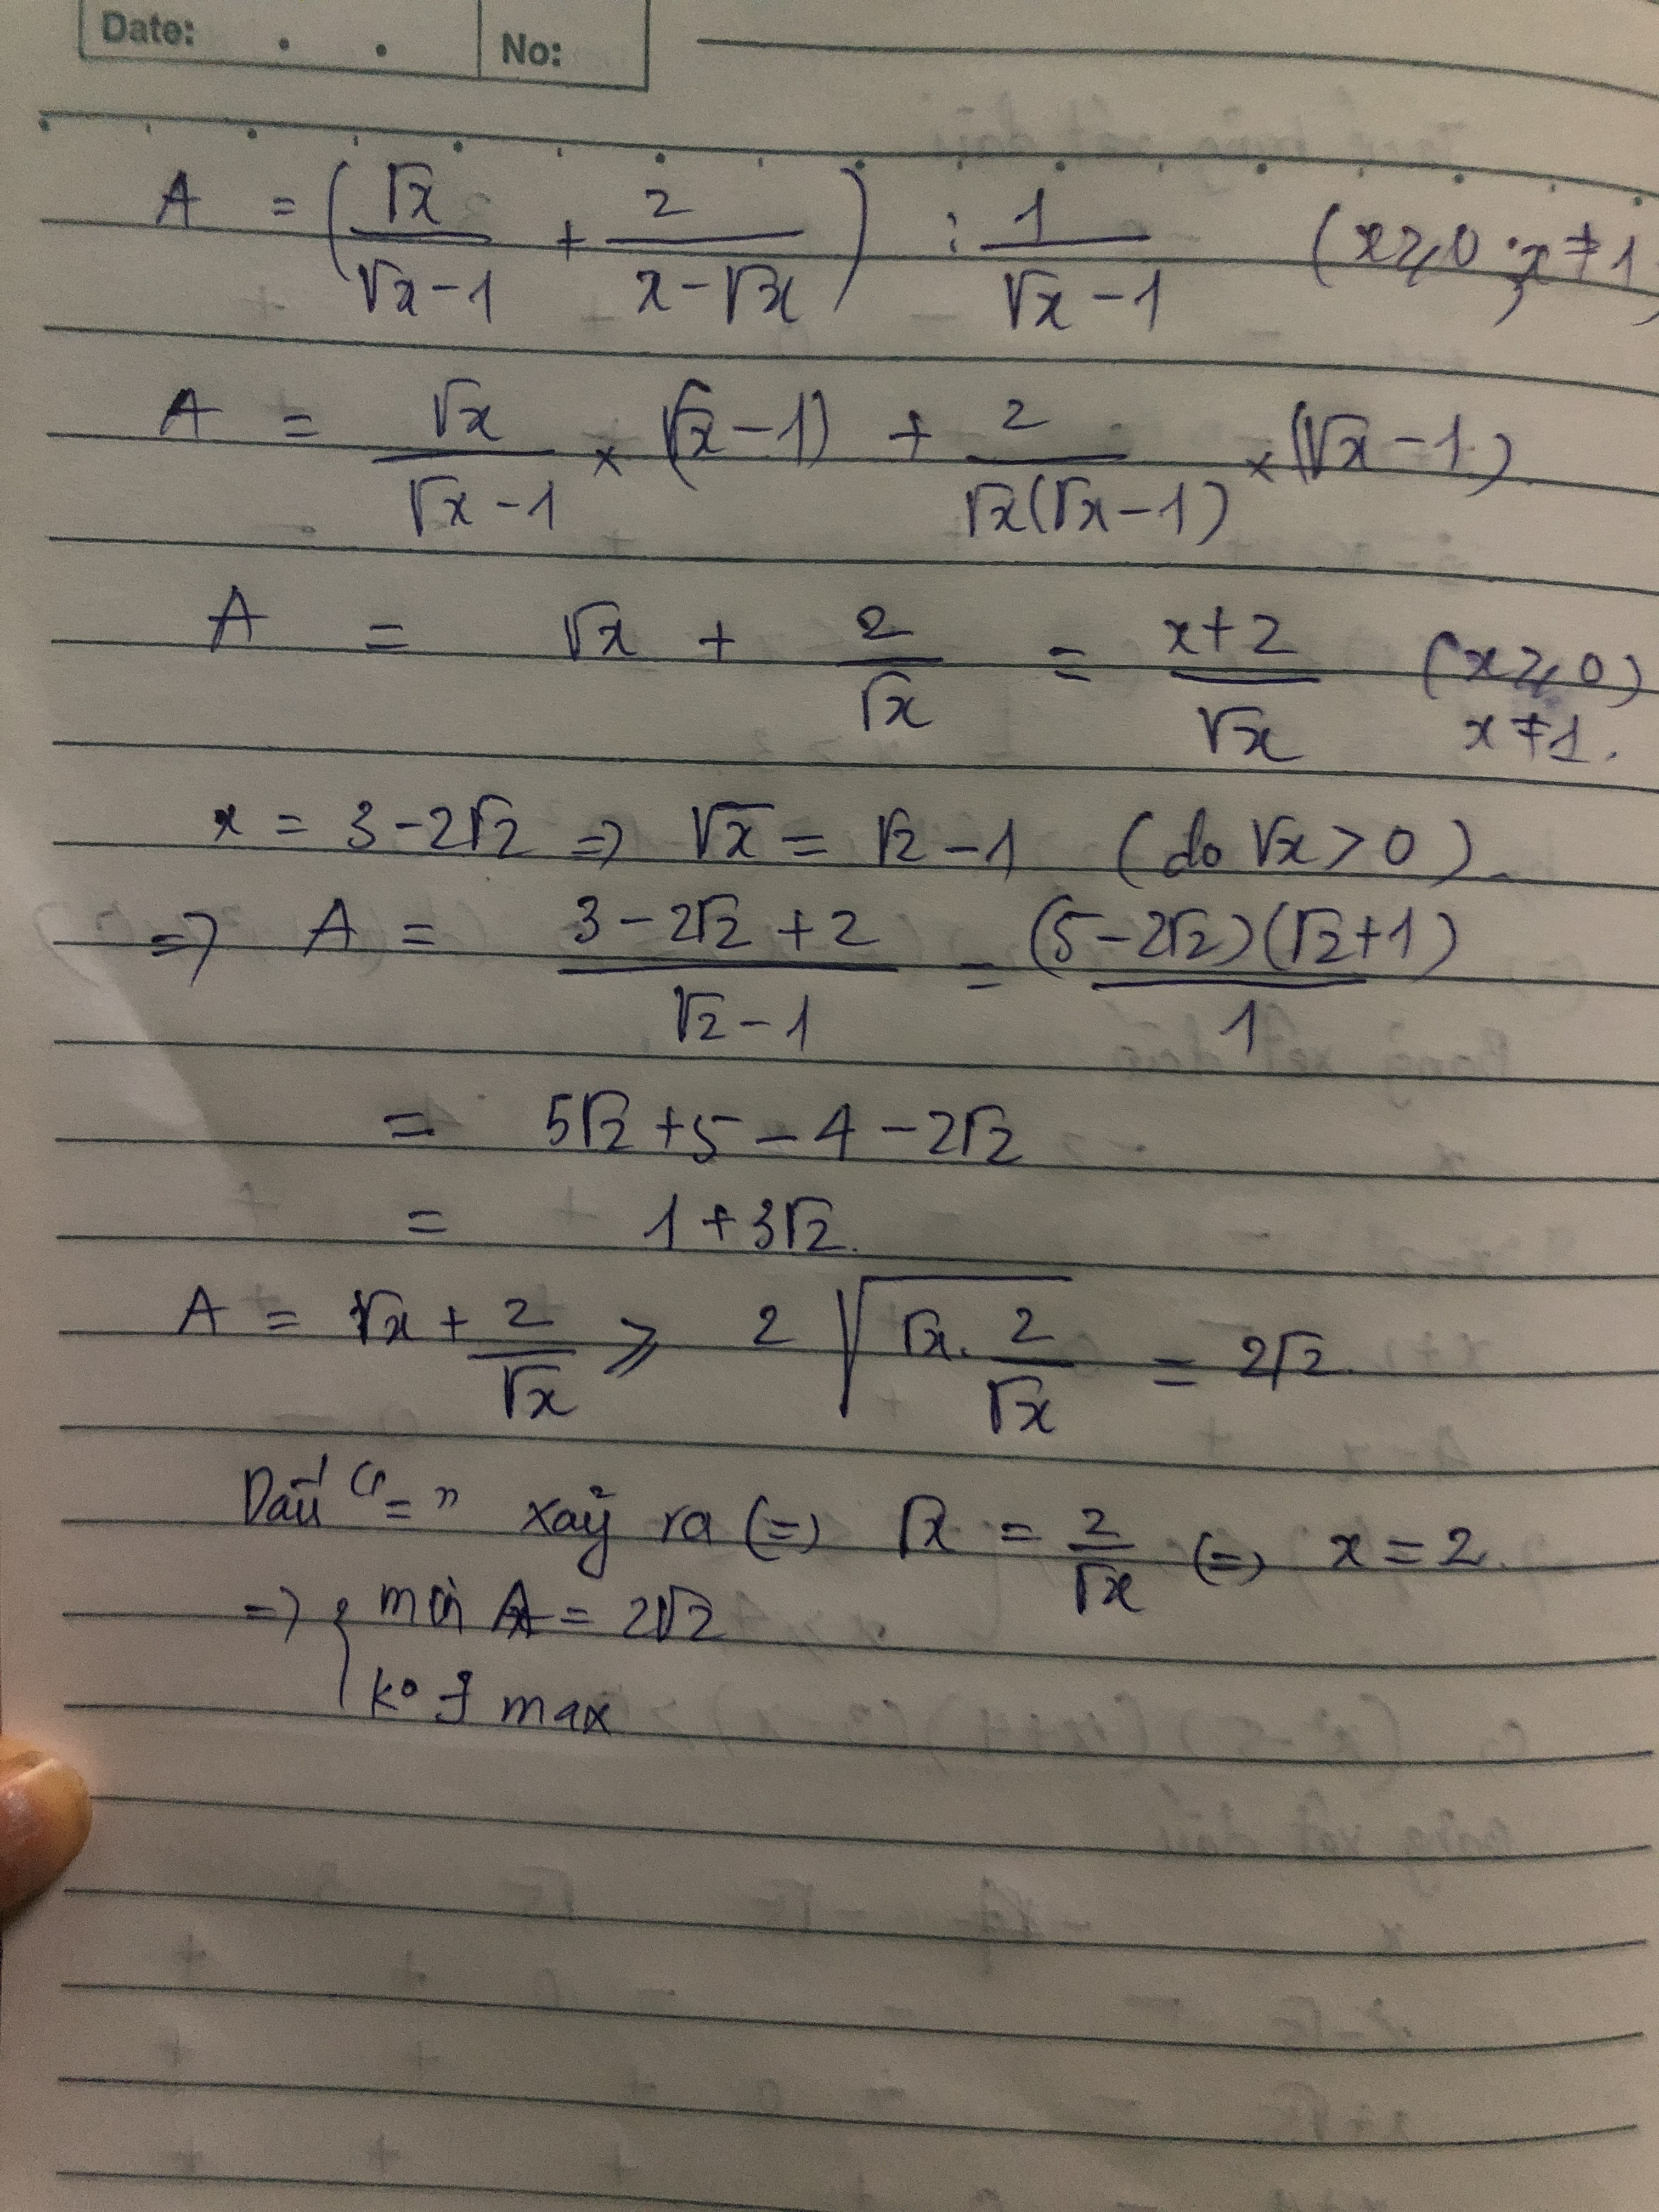 Date: . . No:
A = (√x/(√x-1) + 2/(x-√x)) : 1/(√x-1) (x ⩾ 0 ; x ≠ 1)
A = √x/(√x-1) × (√x-1) + 2/(√x(√x-1)) × (√x-1).
A = √x + 2/√x = (x+2)/√x (x ⩾ 0)
x ≠ 1.
x = 3-2√2 => √x = √2-1 (do √x > 0).
=> A = (3-2√2+2)/(√2-1) = (5-2√2)(√2+1)/1
= 5√2+5-4-2√2
= 1+3√2.
A = √x + 2/√x ⩾ 2√(√x . 2/√x) = 2√2.
Dấu "=" xảy ra (=) √x = 2/√x (=) x = 2.
=> { min A = 2√2
k° ∃ max